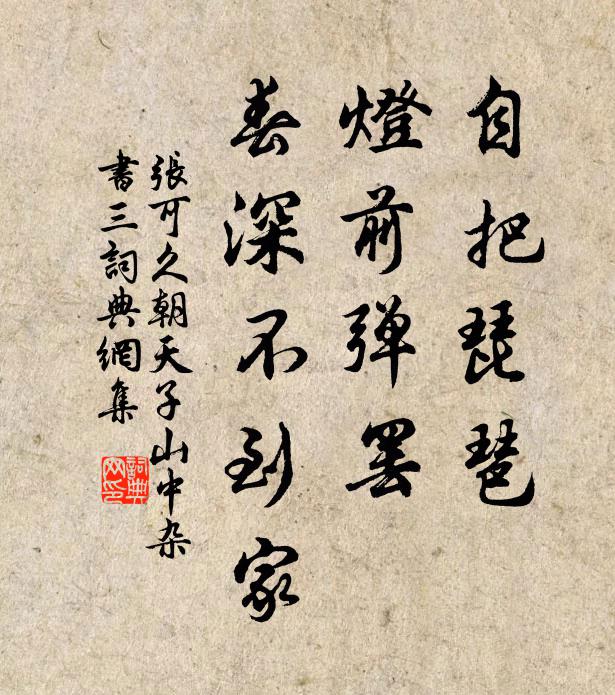 自把琵琶
燈前弹罢
春深不到家
張可久朝天子山中杂
書三詞典網集
詞典
网印